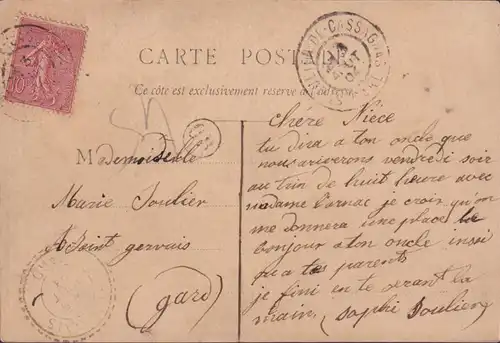 CARTE POSTALE
Ce côté est exclusivement réservé à l'adresse
Mademoiselle
Marie Soulier
A Saint gervais
(gard)
10
chére Niéce
tu dira a ton oncle que
nous ariverons vendredi soir
au trin de huit heure avec
madame larnac je crois qu'on
me donnera une place le
bonjour a ton oncle insi
qu'a tes parents
je fini en te serant la
main. (Sophi Soulier)